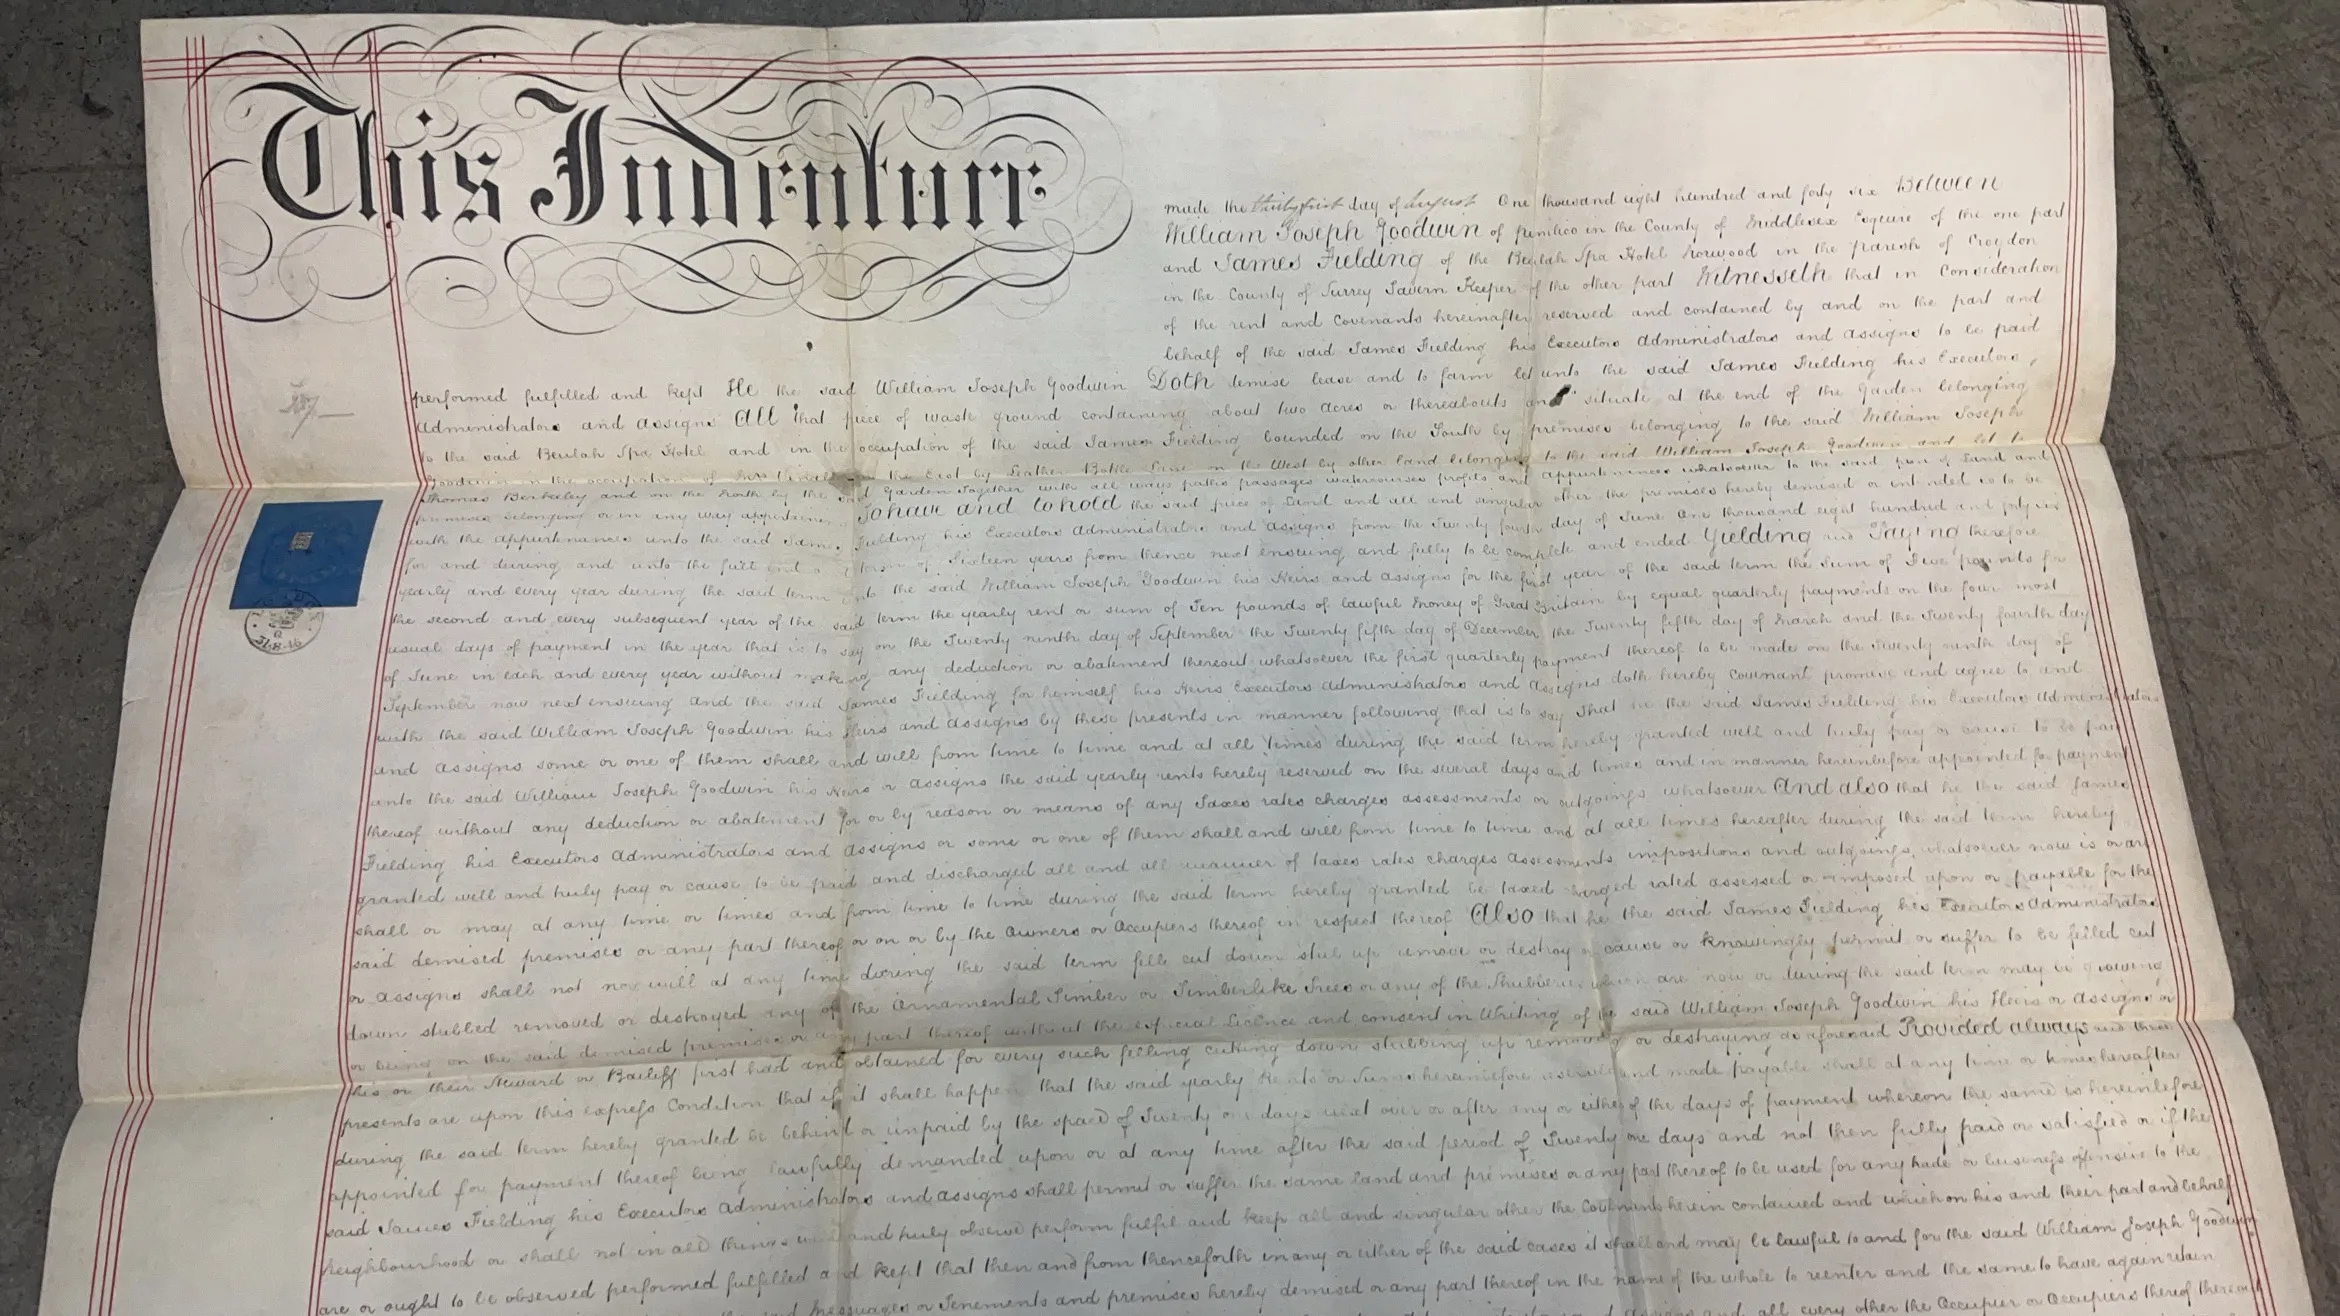 This Indenture
made the thirty first day of August One thousand eight hundred and forty six Between
William Joseph Goodwin of Pimlico in the County of Middlesex Esquire of the one part
and James Fielding of the Beulah Spa Hotel Norwood in the parish of Croydon
in the County of Surrey Tavern Keeper of the other part Witnesseth that in Consideration
of the rent and Covenants hereinafter reserved and contained by and on the part and
behalf of the said James Fielding his Executors Administrators and Assigns to be paid
performed fulfilled and kept He the said William Joseph Goodwin Doth demise lease and to farm let unto the said James Fielding his Executors
Administrators and Assigns All that piece of waste ground containing about two Acres or thereabouts situate at the end of the Garden belonging
to the said Beulah Spa Hotel and in the occupation of the said James Fielding bounded on the South by premises belonging to the said William Joseph
Goodwin in the occupation of the East by Leather Bottle Lane on the West by other land belonging to the said William Joseph Goodwin and let to
Thomas Berkeley and on the North by the said Garden Together with all ways paths passages watercourses profits and appurtenances whatsoever to the said piece of Land and
premises belonging or in any way appertaining To have and to hold the said piece of Land and all and singular other the premises hereby demised or intended so to be
with the appurtenances unto the said James Fielding his Executors Administrators and Assigns from the Twenty fourth day of June One thousand eight hundred and forty six
for and during and unto the full end term of Sixteen years from thence next ensuing and fully to be complete and ended Yielding and Paying therefore
yearly and every year during the said term unto the said William Joseph Goodwin his Heirs and Assigns for the first year of the said term the Sum of Five pounds for
the second and every subsequent year of the said term the yearly rent or sum of Ten pounds of lawful Money of Great Britain by equal quarterly payments on the four most
usual days of payment in the year that is to say on the Twenty ninth day of September the Twenty fifth day of December the Twenty fifth day of March and the Twenty fourth day
of June in each and every year without making any deduction or abatement thereout whatsoever the first quarterly payment thereof to be made on the Twenty ninth day of
September now next ensuing and the said James Fielding for himself his Heirs Executors Administrators and Assigns doth hereby Covenant promise and agree to and
with the said William Joseph Goodwin his Heirs and Assigns by these presents in manner following that is to say That he the said James Fielding his Executors Administrators
and Assigns some or one of them shall and will from time to time and at all times during the said term hereby granted well and truly pay or cause to be paid
unto the said William Joseph Goodwin his Heirs or Assigns the said yearly rents hereby reserved on the several days and times and in manner hereinbefore appointed for payment
thereof without any deduction or abatement for or by reason or means of any Taxes rates charges assessments or outgoings whatsoever And also that he the said James
Fielding his Executors Administrators and Assigns or some or one of them shall and will from time to time and at all times hereafter during the said term hereby
granted well and truly pay or cause to be paid and discharged all and all manner of taxes rates charges Assessments impositions and outgoings whatsoever now is or are
shall or may at any time or times and from time to time during the said term hereby granted be taxed charged rated assessed or imposed upon or payable for the
said demised premises or any part thereof or on or by the Owners or Occupiers thereof in respect thereof Also that he the said James Fielding his Executors Administrators
or Assigns shall not nor will at any time during the said term fell cut down stub up remove or destroy or cause or knowingly permit or suffer to be felled cut
down stubbed removed or destroyed any of the Ornamental Timber or Timberlike Trees or any of the Shubberies which are now or during the said term may be growing
or being on the said demised premises or any part thereof without the especial Licence and consent in Writing of the said William Joseph Goodwin his Heirs or Assigns or
his or their Steward or Bailiff first had and obtained for every such felling cutting down stubbing up removing or destroying as aforesaid Provided always and these
presents are upon this express Condition that if it shall happen that the said yearly Rents or Sums hereinbefore reserved and made payable shall at any time or times hereafter
during the said term hereby granted be behind or unpaid by the space of Twenty one days next over or after any or either of the days of payment whereon the same is hereinbefore
appointed for payment thereof being lawfully demanded upon or at any time after the said period of Twenty one days and not then fully paid or satisfied or if the
said James Fielding his Executors Administrators and assigns shall permit or suffer the same land and premises or any part thereof to be used for any trade or business offensive to the
neighbourhood or shall not in all things well and truly observe perform fulfil and keep all and singular other the Covenants herein contained and which on his and their part and behalf
are or ought to be observed performed fulfilled and kept that then and from thenceforth in any or either of the said cases it shall and may be lawful to and for the said William Joseph Goodwin
Messuages or Tenements and premises hereby demised or any part thereof in the name of the whole to reenter and the same to have again retain
and all every other the Occupier or Occupiers thereof thereout
31.8.46